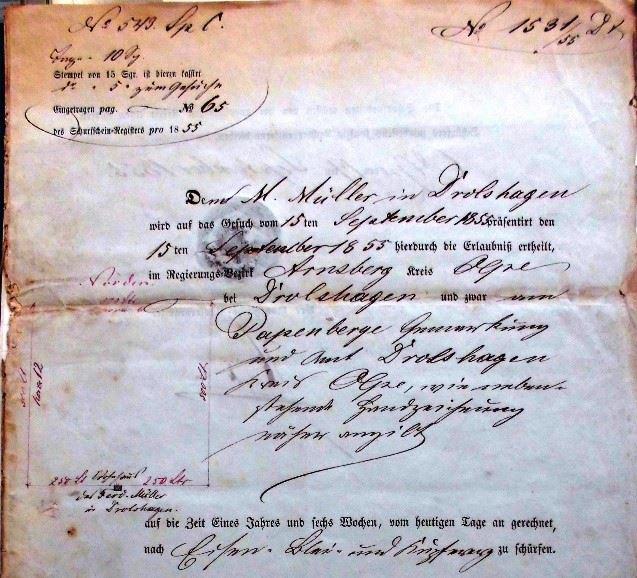 No 543. Sp C.
No 1531/55 Dt
10 Sg
Stempel von 15 Sgr. ist hierzu kassirt
do - 5 - zum Gesuche
Eingetragen pag. No 65
des Schurfschein-Registers pro 1855
Dem M. Müller in Drolshagen
wird auf das Gesuch vom 15ten September 1855 präsentirt den
15ten September 1855 hierdurch die Erlaubniß ertheilt,
im Regierungs-Bezirk Arnsberg Kreis Olpe
bei Drolshagen und zwar am
Papenberge Gemarkung
und Amt Drolshagen
Kreis Olpe, wie neben-
stehende Handzeichnung
näher angibt
Norden
500 Lt.
500 Lt.
250 Lt. Wohnhaus 250 Ltr
des Ferd. Müller
in Drolshagen.
auf die Zeit Eines Jahres und sechs Wochen, vom heutigen Tage an gerechnet,
nach Eisen- Blei- und Kupfererz zu schürfen.